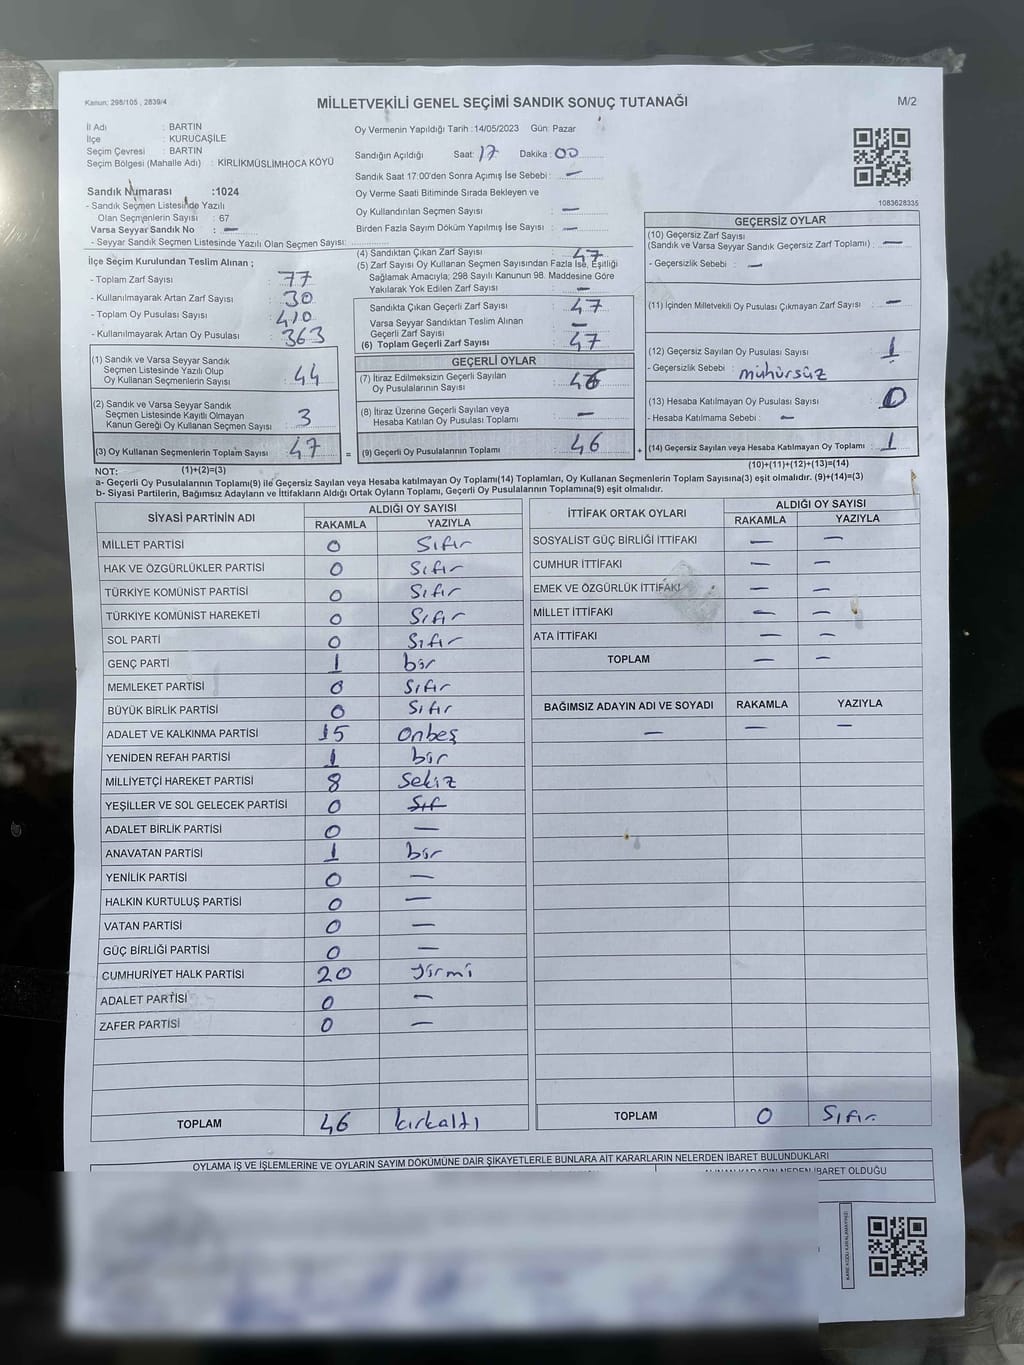 Kanun: 298/105 , 2839/4
MİLLETVEKİLİ GENEL SEÇİMİ SANDIK SONUÇ TUTANAĞI
M/2
İl Adı : BARTIN
İlçe : KURUCAŞİLE
Seçim Çevresi : BARTIN
Seçim Bölgesi (Mahalle Adı) : KİRLİKMÜSLİMHOCA KÖYÜ
Sandık Numarası :1024
- Sandık Seçmen Listesinde Yazılı
Olan Seçmenlerin Sayısı : 67
Varsa Seyyar Sandık No : —
- Seyyar Sandık Seçmen Listesinde Yazılı Olan Seçmen Sayısı:
Oy Vermenin Yapıldığı Tarih :14/05/2023 Gün: Pazar
Sandığın Açıldığı Saat: 17 Dakika : 00
Sandık Saat 17:00'den Sonra Açımış İse Sebebi : —
Oy Verme Saati Bitiminde Sırada Bekleyen ve
Oy Kullandırılan Seçmen Sayısı : —
Birden Fazla Sayım Döküm Yapılmış İse Sayısı : —
1083628335
İlçe Seçim Kurulundan Teslim Alınan ;
- Toplam Zarf Sayısı : 77
- Kullanılmayarak Artan Zarf Sayısı : 30
- Toplam Oy Pusulası Sayısı : 410
- Kullanılmayarak Artan Oy Pusulası : 363
(1) Sandık ve Varsa Seyyar Sandık
Seçmen Listesinde Yazılı Olup
Oy Kullanan Seçmenlerin Sayısı : 44
(2) Sandık ve Varsa Seyyar Sandık
Seçmen Listesinde Kayıtlı Olmayan
Kanun Gereği Oy Kullanan Seçmen Sayısı : 3
(3) Oy Kullanan Seçmenlerin Toplam Sayısı : 47
(1)+(2)=(3)
(4) Sandıktan Çıkan Zarf Sayısı : 47
(5) Zarf Sayısı Oy Kullanan Seçmen Sayısından Fazla İse, Eşitliği
Sağlamak Amacıyla; 298 Sayılı Kanunun 98. Maddesine Göre
Yakılarak Yok Edilen Zarf Sayısı : —
Sandıkta Çıkan Geçerli Zarf Sayısı : 47
Varsa Seyyar Sandıktan Teslim Alınan
Geçerli Zarf Sayısı : —
(6) Toplam Geçerli Zarf Sayısı : 47
GEÇERLİ OYLAR
(7) İtiraz Edilmeksizin Geçerli Sayılan
Oy Pusulalarının Sayısı : 46
(8) İtiraz Üzerine Geçerli Sayılan veya
Hesaba Katılan Oy Pusulası Toplamı : —
= (9) Geçerli Oy Pusulalarının Toplamı : 46
GEÇERSİZ OYLAR
(10) Geçersiz Zarf Sayısı
(Sandık ve Varsa Seyyar Sandık Geçersiz Zarf Toplamı) : —
- Geçersizlik Sebebi : —
(11) İçinden Milletvekili Oy Pusulası Çıkmayan Zarf Sayısı : —
(12) Geçersiz Sayılan Oy Pusulası Sayısı : 1
- Geçersizlik Sebebi : mühürsüz
(13) Hesaba Katılmayan Oy Pusulası Sayısı : 0
- Hesaba Katılmama Sebebi : —
+ (14) Geçersiz Sayılan veya Hesaba Katılmayan Oy Toplamı : 1
(10)+(11)+(12)+(13)=(14)
NOT:
a- Geçerli Oy Pusulalarının Toplamı(9) ile Geçersiz Sayılan veya Hesaba katılmayan Oy Toplamı(14) Toplamları, Oy Kullanan Seçmenlerin Toplam Sayısına(3) eşit olmalıdır. (9)+(14)=(3)
b- Siyasi Partilerin, Bağımsız Adayların ve İttifakların Aldığı Ortak Oyların Toplamı, Geçerli Oy Pusulalarının Toplamına(9) eşit olmalıdır.
SİYASİ PARTİNİN ADI
ALDIĞI OY SAYISI
RAKAMLA YAZIYLA
MİLLET PARTİSİ 0 Sıfır
HAK VE ÖZGÜRLÜKLER PARTİSİ 0 Sıfır
TÜRKİYE KOMÜNİST PARTİSİ 0 Sıfır
TÜRKİYE KOMÜNİST HAREKETİ 0 Sıfır
SOL PARTİ 0 Sıfır
GENÇ PARTİ 1 bir
MEMLEKET PARTİSİ 0 Sıfır
BÜYÜK BİRLİK PARTİSİ 0 Sıfır
ADALET VE KALKINMA PARTİSİ 15 Onbeş
YENİDEN REFAH PARTİSİ 1 bir
MİLLİYETÇİ HAREKET PARTİSİ 8 Sekiz
YEŞİLLER VE SOL GELECEK PARTİSİ 0 Sıf
ADALET BİRLİK PARTİSİ 0 —
ANAVATAN PARTİSİ 1 bir
YENİLİK PARTİSİ 0 —
HALKIN KURTULUŞ PARTİSİ 0 —
VATAN PARTİSİ 0 —
GÜÇ BİRLİĞİ PARTİSİ 0 —
CUMHURİYET HALK PARTİSİ 20 yirmi
ADALET PARTİSİ 0 —
ZAFER PARTİSİ 0 —
TOPLAM 46 kırkaltı
İTTİFAK ORTAK OYLARI
ALDIĞI OY SAYISI
RAKAMLA YAZIYLA
SOSYALİST GÜÇ BİRLİĞİ İTTİFAKI — —
CUMHUR İTTİFAKI — —
EMEK VE ÖZGÜRLÜK İTTİFAKI — —
MİLLET İTTİFAKI — —
ATA İTTİFAKI — —
TOPLAM — —
BAĞIMSIZ ADAYIN ADI VE SOYADI RAKAMLA YAZIYLA
— — —
TOPLAM 0 Sıfır
OYLAMA İŞ VE İŞLEMLERİNE VE OYLARIN SAYIM DÖKÜMÜNE DAİR ŞİKAYETLERLE BUNLARA AİT KARARLARIN NELERDEN İBARET BULUNDUKLARI
ALINAN KARARIN NEDEN İBARET OLDUĞU